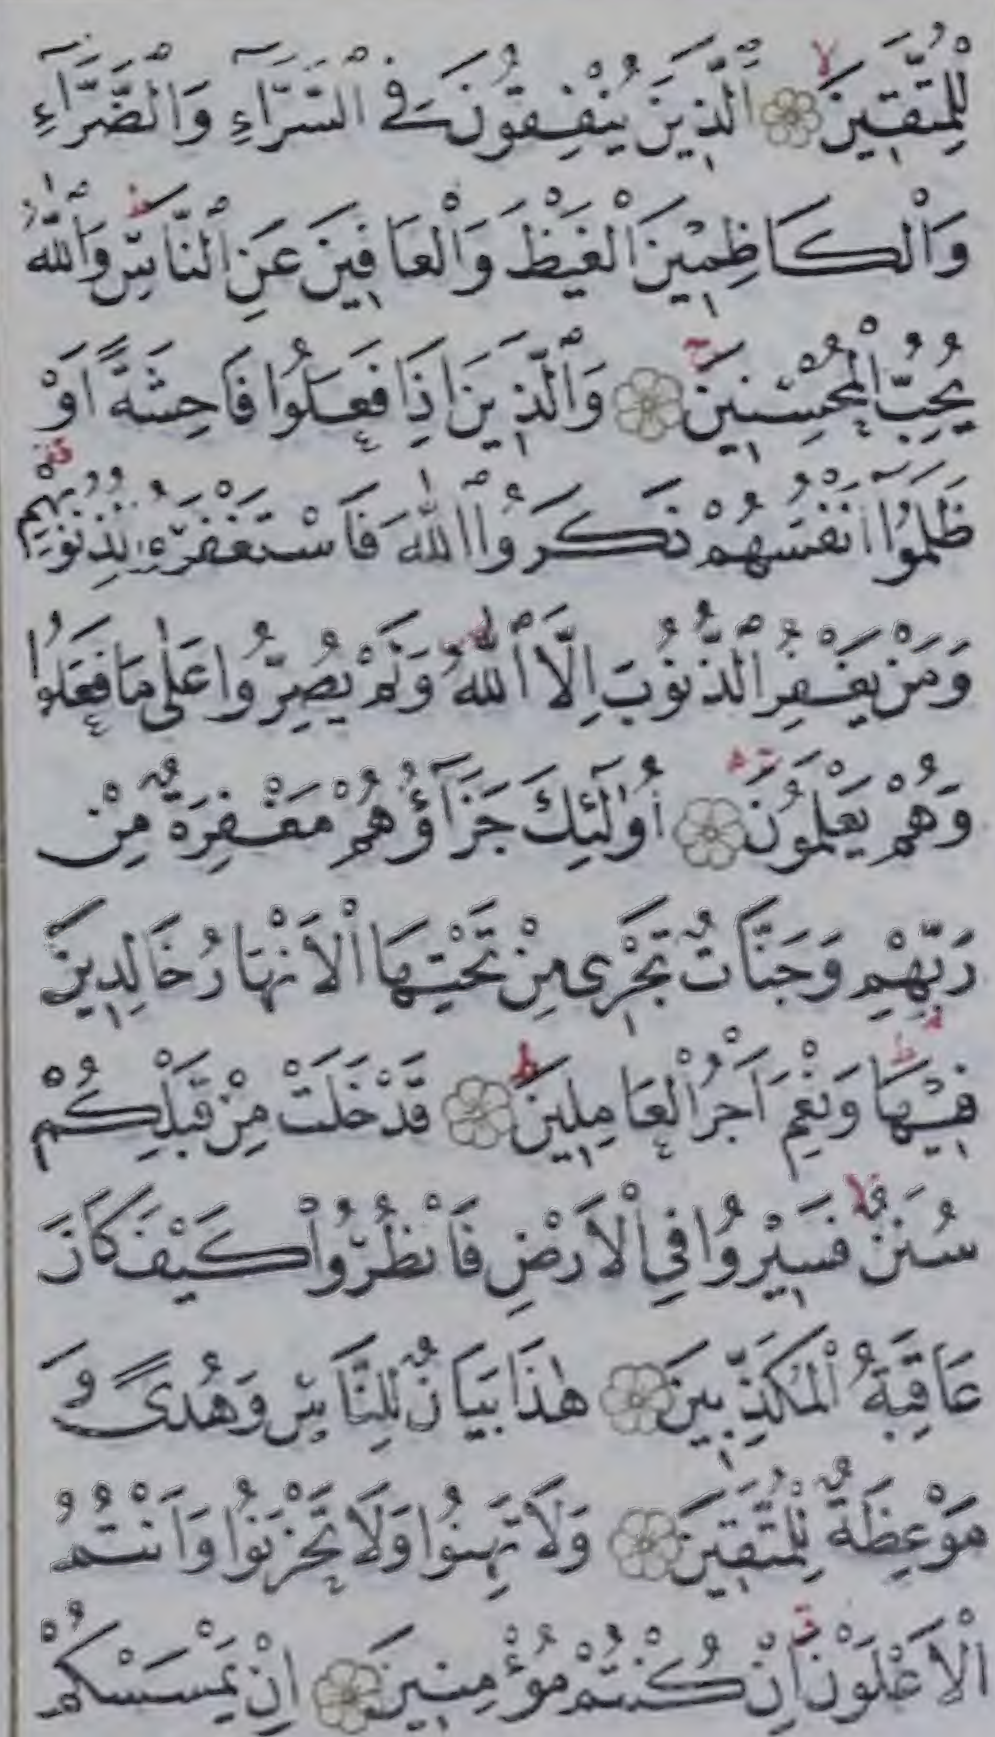 لِلْمُتَّقِينَ ۝ اَلَّذِينَ يُنْفِقُونَ فِي السَّرَّآءِ وَالضَّرَّآءِ
وَالْكَاظِمِينَ الْغَيْظَ وَالْعَافِينَ عَنِ النَّاسِ وَاللّٰهُ
يُحِبُّ الْمُحْسِنِينَ ۝ وَالَّذِينَ اِذَا فَعَلُوا فَاحِشَةً اَوْ
ظَلَمُوٓا اَنْفُسَهُمْ ذَكَرُوا اللّٰهَ فَاسْتَغْفَرُوا لِذُنُوبِهِمْ
وَمَنْ يَغْفِرُ الذُّنُوبَ اِلَّا اللّٰهُ وَلَمْ يُصِرُّوا عَلٰى مَا فَعَلُوا
وَهُمْ يَعْلَمُونَ ۝ اُولٰٓئِكَ جَزَٓاؤُهُمْ مَغْفِرَةٌ مِنْ
رَبِّهِمْ وَجَنَّاتٌ تَجْرِي مِنْ تَحْتِهَا الْاَنْهَارُ خَالِدِينَ
فِيهَا وَنِعْمَ اَجْرُ الْعَامِلِينَ ۝ قَدْ خَلَتْ مِنْ قَبْلِكُمْ
سُنَنٌ فَسِيرُوا فِي الْاَرْضِ فَانْظُرُوا كَيْفَ كَانَ
عَاقِبَةُ الْمُكَذِّبِينَ ۝ هٰذَا بَيَانٌ لِلنَّاسِ وَهُدًى وَ
مَوْعِظَةٌ لِلْمُتَّقِينَ ۝ وَلَا تَهِنُوا وَلَا تَحْزَنُوا وَاَنْتُمُ
الْاَعْلَوْنَ اِنْ كُنْتُمْ مُؤْمِنِينَ ۝ اِنْ يَمْسَسْكُمْ